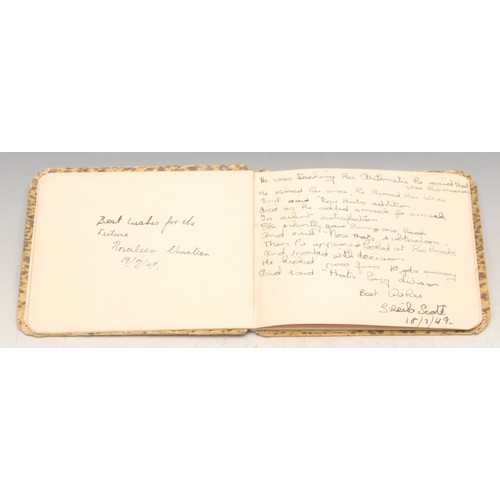 Best Wishes for the
Future
19/7/49.
He was teaching her Arithmetic He said that
was his mission
He kissed her once, he kissed her twice
And said "Now that's addition
And as he added smack for smack
In silent satisfaction
She silently gave him one back
And said "Now that's subtraction"
Then Pa appeared looked at the both
And snorted with decision
He kicked from 10 yds away
And said "that's long division
Best Wishes
Sheila Scott
18/7/49.